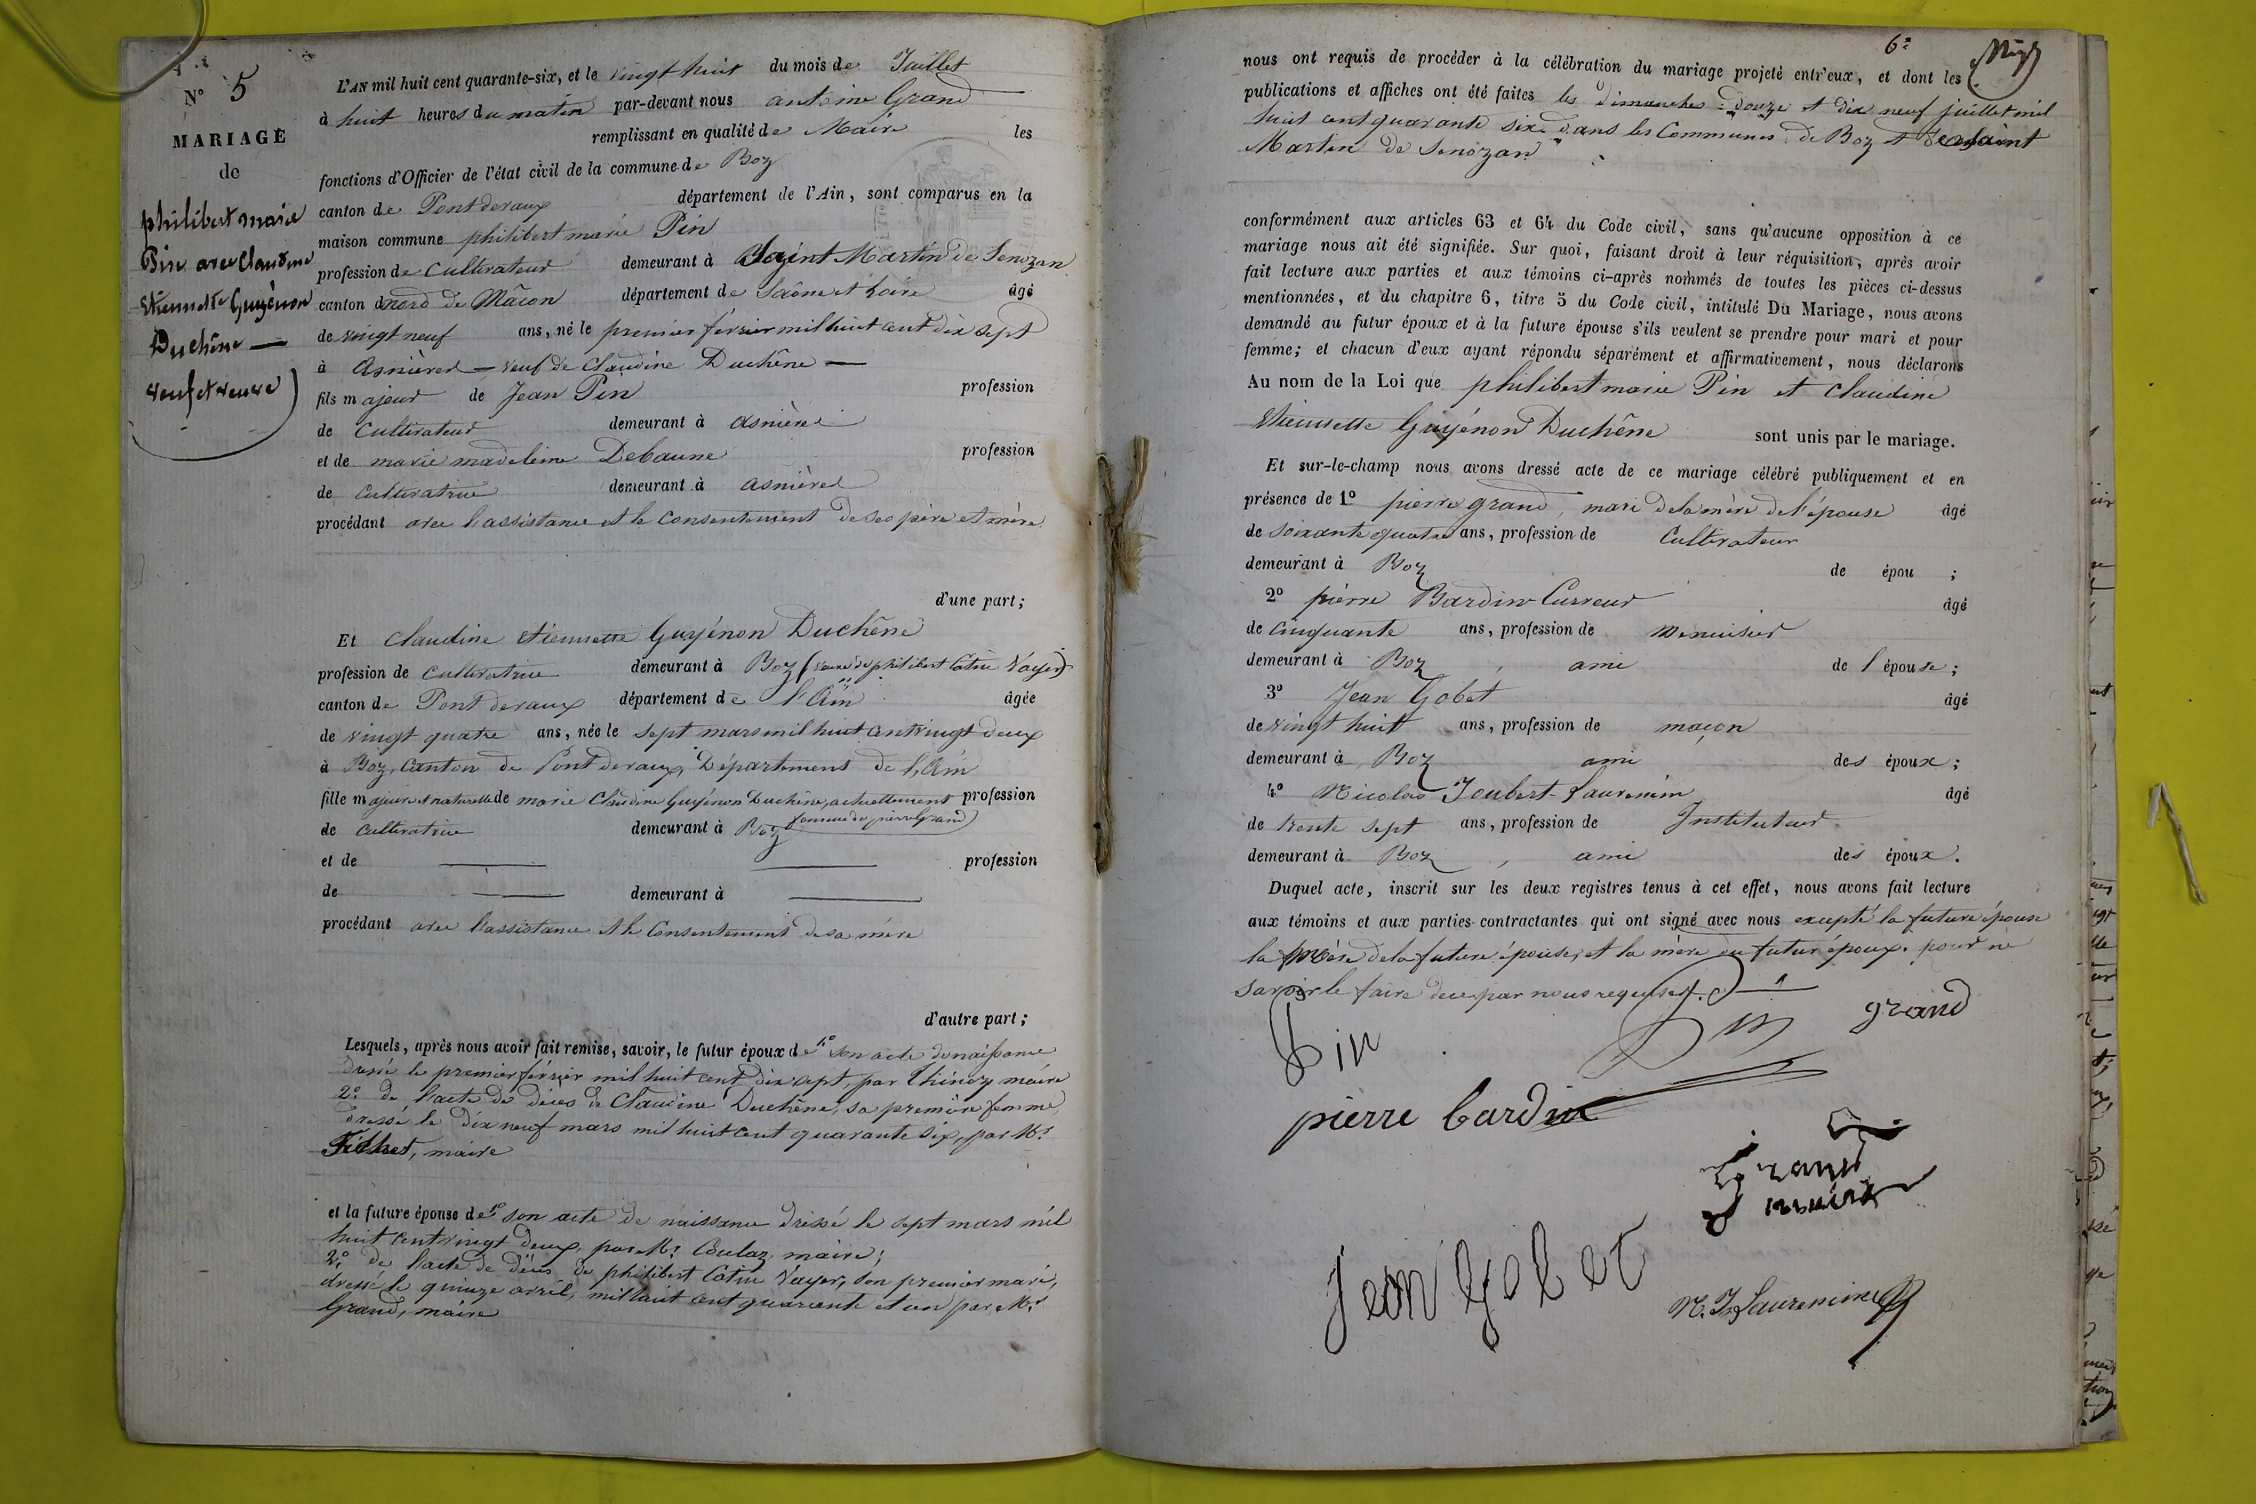 N° 5
MARIAGE
de
philibert marie
Pin avec Claudine
Etiennette Guyénon
Duchêne —
veuf et veuve
L'AN mil huit cent quarante-six, et le vingt huit du mois de Juillet
à huit heures du matin par-devant nous antoine Grand
remplissant en qualité de Maire les
fonctions d'Officier de l'état civil de la commune de Boz
canton de Pont devaux département de l'Ain, sont comparus en la
maison commune philibert marie Pin
profession de Cultivateur demeurant à Saint Martin de Senozan
canton d nord de Mâcon département de Saône et Loire âgé
de vingt neuf ans, né le premier février mil huit cent dix sept
à Asnières — veuf de Claudine Duchêne —
fils majeur de Jean Pin profession
de Cultivateur demeurant à asnières
et de marie madeleine Debaune profession
de Cultivatrice demeurant à asnières
procédant avec l'assistance et le consentement de ses père et mère
d'une part;
Et Claudine etiennette Guyénon Duchêne
profession de cultivatrice demeurant à Boz (veuve de philibert Catin Vayer)
canton de Pont devaux département de l'Ain âgée
de vingt quatre ans, née le sept mars mil huit cent vingt deux
à Boz, Canton de Pont devaux, Département de l'Ain
fille majeure et naturelle de marie Claudine Guyénon Duchêne, actuellement profession
femme de pierre Grand
de cultivatrice demeurant à Boz
et de — — profession
de — demeurant à —
procédant avec l'assistance et le Consentement de sa mère
d'autre part;
Lesquels, après nous avoir fait remise, savoir, le futur époux de 1° son acte de naissance
dressé le premier février mil huit cent dix sept, par Thinoz maire
2° de l'acte de décès de Claudine Duchêne, sa première femme
dressé le dix neuf mars mil huit cent quarante six, par Mr
maire
et la future épouse de 1° son acte de naissance dressé le sept mars mil
huit cent vingt deux, par Mr Coulaz, maire;
2° de l'acte de décès de philibert Catin Vayer, son premier mari,
dressé le quinze avril, mil huit cent quarante et un par Mr
Grand, maire
6e
nous ont requis de procéder à la célébration du mariage projeté entr'eux, et dont les
publications et affiches ont été faites les dimanches douze et dix neuf juillet mil
huit cent quarante six dans les Communes de Boz et de saint
Martin de Senozan
conformément aux articles 63 et 64 du Code civil, sans qu'aucune opposition à ce
mariage nous ait été signifiée. Sur quoi, faisant droit à leur réquisition, après avoir
fait lecture aux parties et aux témoins ci-après nommés de toutes les pièces ci-dessus
mentionnées, et du chapitre 6, titre 5 du Code civil, intitulé Du Mariage, nous avons
demandé au futur époux et à la future épouse s'ils veulent se prendre pour mari et pour
femme; et chacun d'eux ayant répondu séparément et affirmativement, nous déclarons
Au nom de la Loi que philibert marie Pin et Claudine
etiennette Guyénon Duchêne sont unis par le mariage.
Et sur-le-champ nous avons dressé acte de ce mariage célébré publiquement et en
présence de 1° pierre grand, mari de la mère de l'épouse âgé
de soixante quatre ans, profession de Cultivateur
demeurant à Boz de épou ;
2° pierre Bardin Curveur âgé
de cinquante ans, profession de menuisier
demeurant à Boz, ami de l'épouse;
3° Jean Gobet âgé
de vingt huit ans, profession de maçon
demeurant à Boz ami des époux;
4° Nicolas Joubert-Laurencin âgé
de trente sept ans, profession de Instituteur
demeurant à Boz, ami des époux.
Duquel acte, inscrit sur les deux registres tenus à cet effet, nous avons fait lecture
aux témoins et aux parties contractantes qui ont signé avec nous excepté la future épouse
la mère de la future épouse, et la mère du futur époux. pour ne
savoir le faire de ce par nous requises.
Pin
Pin
grand
pierre bardin
Grand
maire
Jean Gobet
N. J. Laurencin